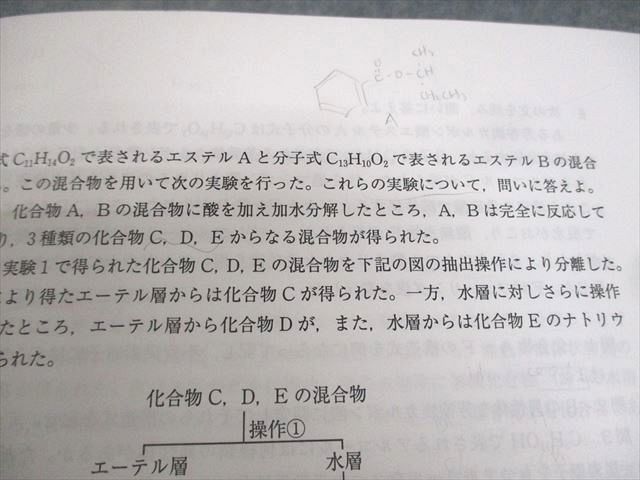 CH₃
O
C-O-CH
CH₂CH₃
A
式 C₁₁H₁₄O₂ で表されるエステル A と分子式 C₁₃H₁₀O₂ で表されるエステル B の混合
。この混合物を用いて次の実験を行った。これらの実験について，問いに答えよ。
化合物 A，B の混合物に酸を加え加水分解したところ，A，B は完全に反応して
り，3 種類の化合物 C，D，E からなる混合物が得られた。
実験 1 で得られた化合物 C，D，E の混合物を下記の図の抽出操作により分離した。
により得たエーテル層からは化合物 C が得られた。一方，水層に対しさらに操作
たところ，エーテル層から化合物 D が，また，水層からは化合物 E のナトリウ
られた。
化合物 C，D，E の混合物
操作①
エーテル層 水層